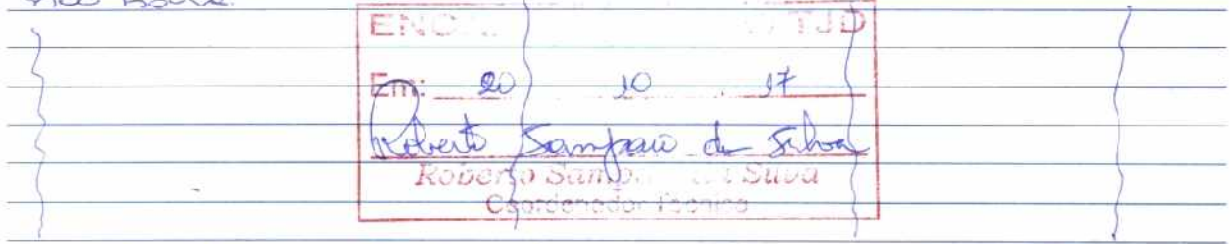 TJD
Em: 20 10 17
Roberto Sampaio da Silva
Roberto Silva
Coordenador Técnico